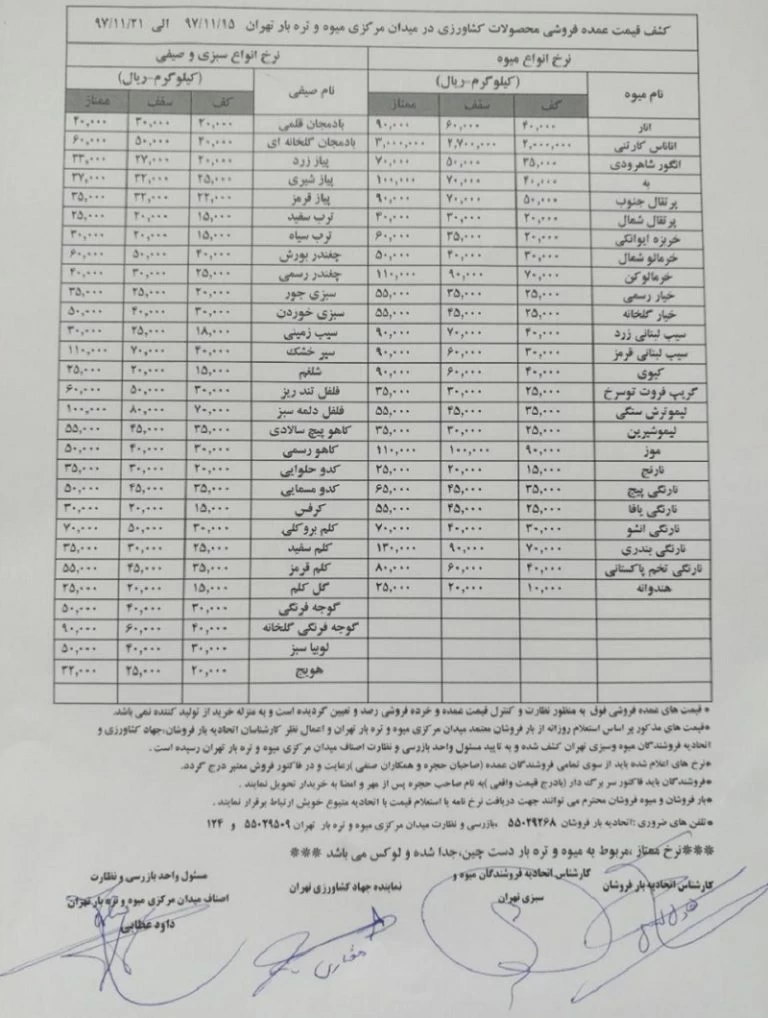 کشف قیمت عمده فروشی محصولات کشاورزی در میدان مرکزی میوه و تره بار تهران ۹۷/۱۱/۱۵ الی ۹۷/۱۱/۲۱
نرخ انواع میوه نرخ انواع سبزی و صیفی
نام میوه (کیلوگرم-ریال) نام صیفی (کیلوگرم-ریال)
کف سقف ممتاز کف سقف ممتاز
انار ۴۰,۰۰۰ ۶۰,۰۰۰ ۹۰,۰۰۰ بادمجان قلمی ۲۰,۰۰۰ ۳۰,۰۰۰ ۴۰,۰۰۰
اناناس کارتنی ۲,۰۰۰,۰۰۰ ۲,۷۰۰,۰۰۰ ۳,۰۰۰,۰۰۰ بادمجان گلخانه ای ۴۰,۰۰۰ ۵۰,۰۰۰ ۶۰,۰۰۰
انگور شاهرودی ۳۵,۰۰۰ ۵۰,۰۰۰ ۷۰,۰۰۰ پیاز زرد ۲۰,۰۰۰ ۲۷,۰۰۰ ۳۳,۰۰۰
به ۴۰,۰۰۰ ۷۰,۰۰۰ ۱۰۰,۰۰۰ پیاز شیری ۲۵,۰۰۰ ۳۲,۰۰۰ ۳۷,۰۰۰
پرتقال جنوب ۵۰,۰۰۰ ۷۰,۰۰۰ ۹۰,۰۰۰ پیاز قرمز ۲۲,۰۰۰ ۳۲,۰۰۰ ۳۵,۰۰۰
پرتقال شمال ۲۰,۰۰۰ ۳۰,۰۰۰ ۴۰,۰۰۰ ترب سفید ۱۵,۰۰۰ ۲۰,۰۰۰ ۲۵,۰۰۰
خربزه ایوانکی ۲۰,۰۰۰ ۳۵,۰۰۰ ۶۰,۰۰۰ ترب سیاه ۱۵,۰۰۰ ۲۰,۰۰۰ ۳۰,۰۰۰
خرمالو شمال ۳۰,۰۰۰ ۴۰,۰۰۰ ۵۰,۰۰۰ چغندر بورش ۴۰,۰۰۰ ۵۰,۰۰۰ ۶۰,۰۰۰
خرمالوکن ۷۰,۰۰۰ ۹۰,۰۰۰ ۱۱۰,۰۰۰ چغندر رسمی ۲۵,۰۰۰ ۳۰,۰۰۰ ۴۰,۰۰۰
خیار رسمی ۲۵,۰۰۰ ۳۵,۰۰۰ ۵۵,۰۰۰ سبزی جور ۲۰,۰۰۰ ۲۵,۰۰۰ ۳۵,۰۰۰
خیار گلخانه ۲۵,۰۰۰ ۴۵,۰۰۰ ۵۵,۰۰۰ سبزی خوردن ۳۰,۰۰۰ ۴۰,۰۰۰ ۵۰,۰۰۰
سیب لبنانی زرد ۴۰,۰۰۰ ۷۰,۰۰۰ ۹۰,۰۰۰ سیب زمینی ۱۸,۰۰۰ ۲۵,۰۰۰ ۳۰,۰۰۰
سیب لبنانی قرمز ۳۰,۰۰۰ ۶۰,۰۰۰ ۹۰,۰۰۰ سیر خشک ۴۰,۰۰۰ ۷۰,۰۰۰ ۱۱۰,۰۰۰
کیوی ۴۰,۰۰۰ ۶۰,۰۰۰ ۹۰,۰۰۰ شلغم ۱۵,۰۰۰ ۲۰,۰۰۰ ۲۵,۰۰۰
گریپ فروت توسرخ ۲۵,۰۰۰ ۳۰,۰۰۰ ۳۵,۰۰۰ فلفل تند ریز ۳۰,۰۰۰ ۵۰,۰۰۰ ۶۰,۰۰۰
لیموترش سنگی ۳۵,۰۰۰ ۴۵,۰۰۰ ۵۵,۰۰۰ فلفل دلمه سبز ۷۰,۰۰۰ ۸۰,۰۰۰ ۱۰۰,۰۰۰
لیموشیرین ۲۵,۰۰۰ ۳۰,۰۰۰ ۳۵,۰۰۰ کاهو پیچ سالادی ۳۵,۰۰۰ ۴۵,۰۰۰ ۵۵,۰۰۰
موز ۹۰,۰۰۰ ۱۰۰,۰۰۰ ۱۱۰,۰۰۰ کاهو رسمی ۳۰,۰۰۰ ۴۰,۰۰۰ ۵۰,۰۰۰
نارنج ۱۵,۰۰۰ ۲۰,۰۰۰ ۲۵,۰۰۰ کدو حلوایی ۲۰,۰۰۰ ۳۰,۰۰۰ ۳۵,۰۰۰
نارنگی پیچ ۳۵,۰۰۰ ۴۵,۰۰۰ ۶۵,۰۰۰ کدو مسمایی ۳۵,۰۰۰ ۴۵,۰۰۰ ۵۰,۰۰۰
نارنگی یافا ۲۵,۰۰۰ ۴۵,۰۰۰ ۵۵,۰۰۰ کرفس ۱۵,۰۰۰ ۲۰,۰۰۰ ۳۰,۰۰۰
نارنگی انشو ۳۰,۰۰۰ ۴۰,۰۰۰ ۷۰,۰۰۰ کلم بروکلی ۳۰,۰۰۰ ۵۰,۰۰۰ ۷۰,۰۰۰
نارنگی بندری ۷۰,۰۰۰ ۹۰,۰۰۰ ۱۳۰,۰۰۰ کلم سفید ۲۵,۰۰۰ ۳۰,۰۰۰ ۳۵,۰۰۰
نارنگی تخم پاکستانی ۴۰,۰۰۰ ۶۰,۰۰۰ ۸۰,۰۰۰ کلم قرمز ۳۵,۰۰۰ ۴۵,۰۰۰ ۵۵,۰۰۰
هندوانه ۱۰,۰۰۰ ۲۰,۰۰۰ ۲۵,۰۰۰ گل کلم ۱۵,۰۰۰ ۲۰,۰۰۰ ۲۵,۰۰۰
گوجه فرنگی ۳۰,۰۰۰ ۴۰,۰۰۰ ۵۰,۰۰۰
گوجه فرنگی گلخانه ۴۰,۰۰۰ ۶۰,۰۰۰ ۹۰,۰۰۰
لوبیا سبز ۳۰,۰۰۰ ۴۰,۰۰۰ ۵۰,۰۰۰
هویج ۲۰,۰۰۰ ۲۵,۰۰۰ ۳۲,۰۰۰
* قیمت های عمده فروشی فوق به منظور نظارت و کنترل قیمت عمده و خرده فروشی رصد و تعیین گردیده است و به منزله خرید از تولید کننده نمی باشد.
*قیمت های مذکور بر اساس استعلام روزانه از بار فروشان معتمد میدان مرکزی میوه و تره بار تهران و اعمال نظر کارشناسان اتحادیه بار فروشان،جهاد کشاورزی و
اتحادیه فروشندگان میوه وسبزی تهران کشف شده و به تایید مسئول واحد بازرسی و نظارت اصناف میدان مرکزی میوه و تره بار تهران رسیده است .
*نرخ های اعلام شده باید از سوی تمامی فروشندگان عمده (صاحبان حجره و همکاران صنفی )رعایت و در فاکتور فروش معتبر درج گردد.
*فروشندگان باید فاکتور سر برگ دار (بادرج قیمت واقعی )به نام صاحب حجره پس از مهر و امضا به خریدار تحویل نمایند .
*بار فروشان و میوه فروشان محترم می توانند جهت دریافت نرخ نامه یا استعلام قیمت با اتحادیه متبوع خویش ارتباط برقرار نمایند .
*تلفن های ضروری :اتحادیه بار فروشان ۵۵۰۲۹۲۶۸ ،بازرسی و نظارت میدان مرکزی میوه و تره بار تهران ۵۵۰۲۹۵۰۹ و ۱۲۴
***نرخ ممتاز ،مربوط به میوه و تره بار دست چین،جدا شده و لوکس می باشد ***
کارشناس اتحادیه بار فروشان
کارشناس اتحادیه فروشندگان میوه و
سبزی تهران
نماینده جهاد کشاورزی تهران
مسئول واحد بازرسی و نظارت
اصناف میدان مرکزی میوه و تره بار تهران
داود عطایی